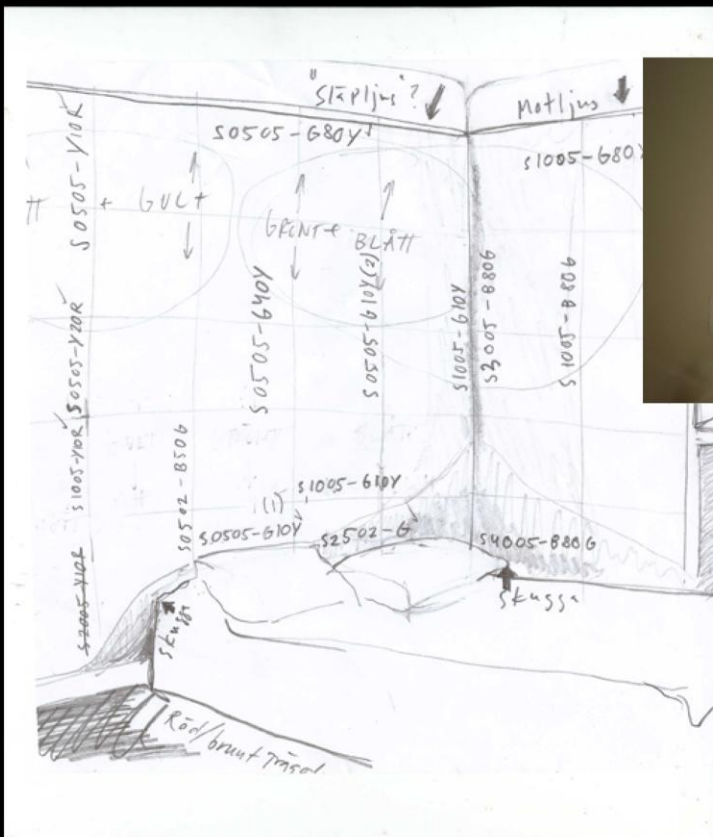 "Släpljus"?
Motljus
S0505-G80Y
S1005-G80Y
S0505-Y10R
+ GULT
GRÖNT+
BLÅTT
S0505-Y20R
S0505-G40Y
S0505-G10Y(2)
S1005-G10Y
S3005-B80G
S1005-B80G
S1005-Y10R
S0502-B50G
(1)
S1005-G10Y
S0505-G10Y
S2502-G
S4005-B80G
S2005-Y10R
Skugga
Skugga
Röd/brunt